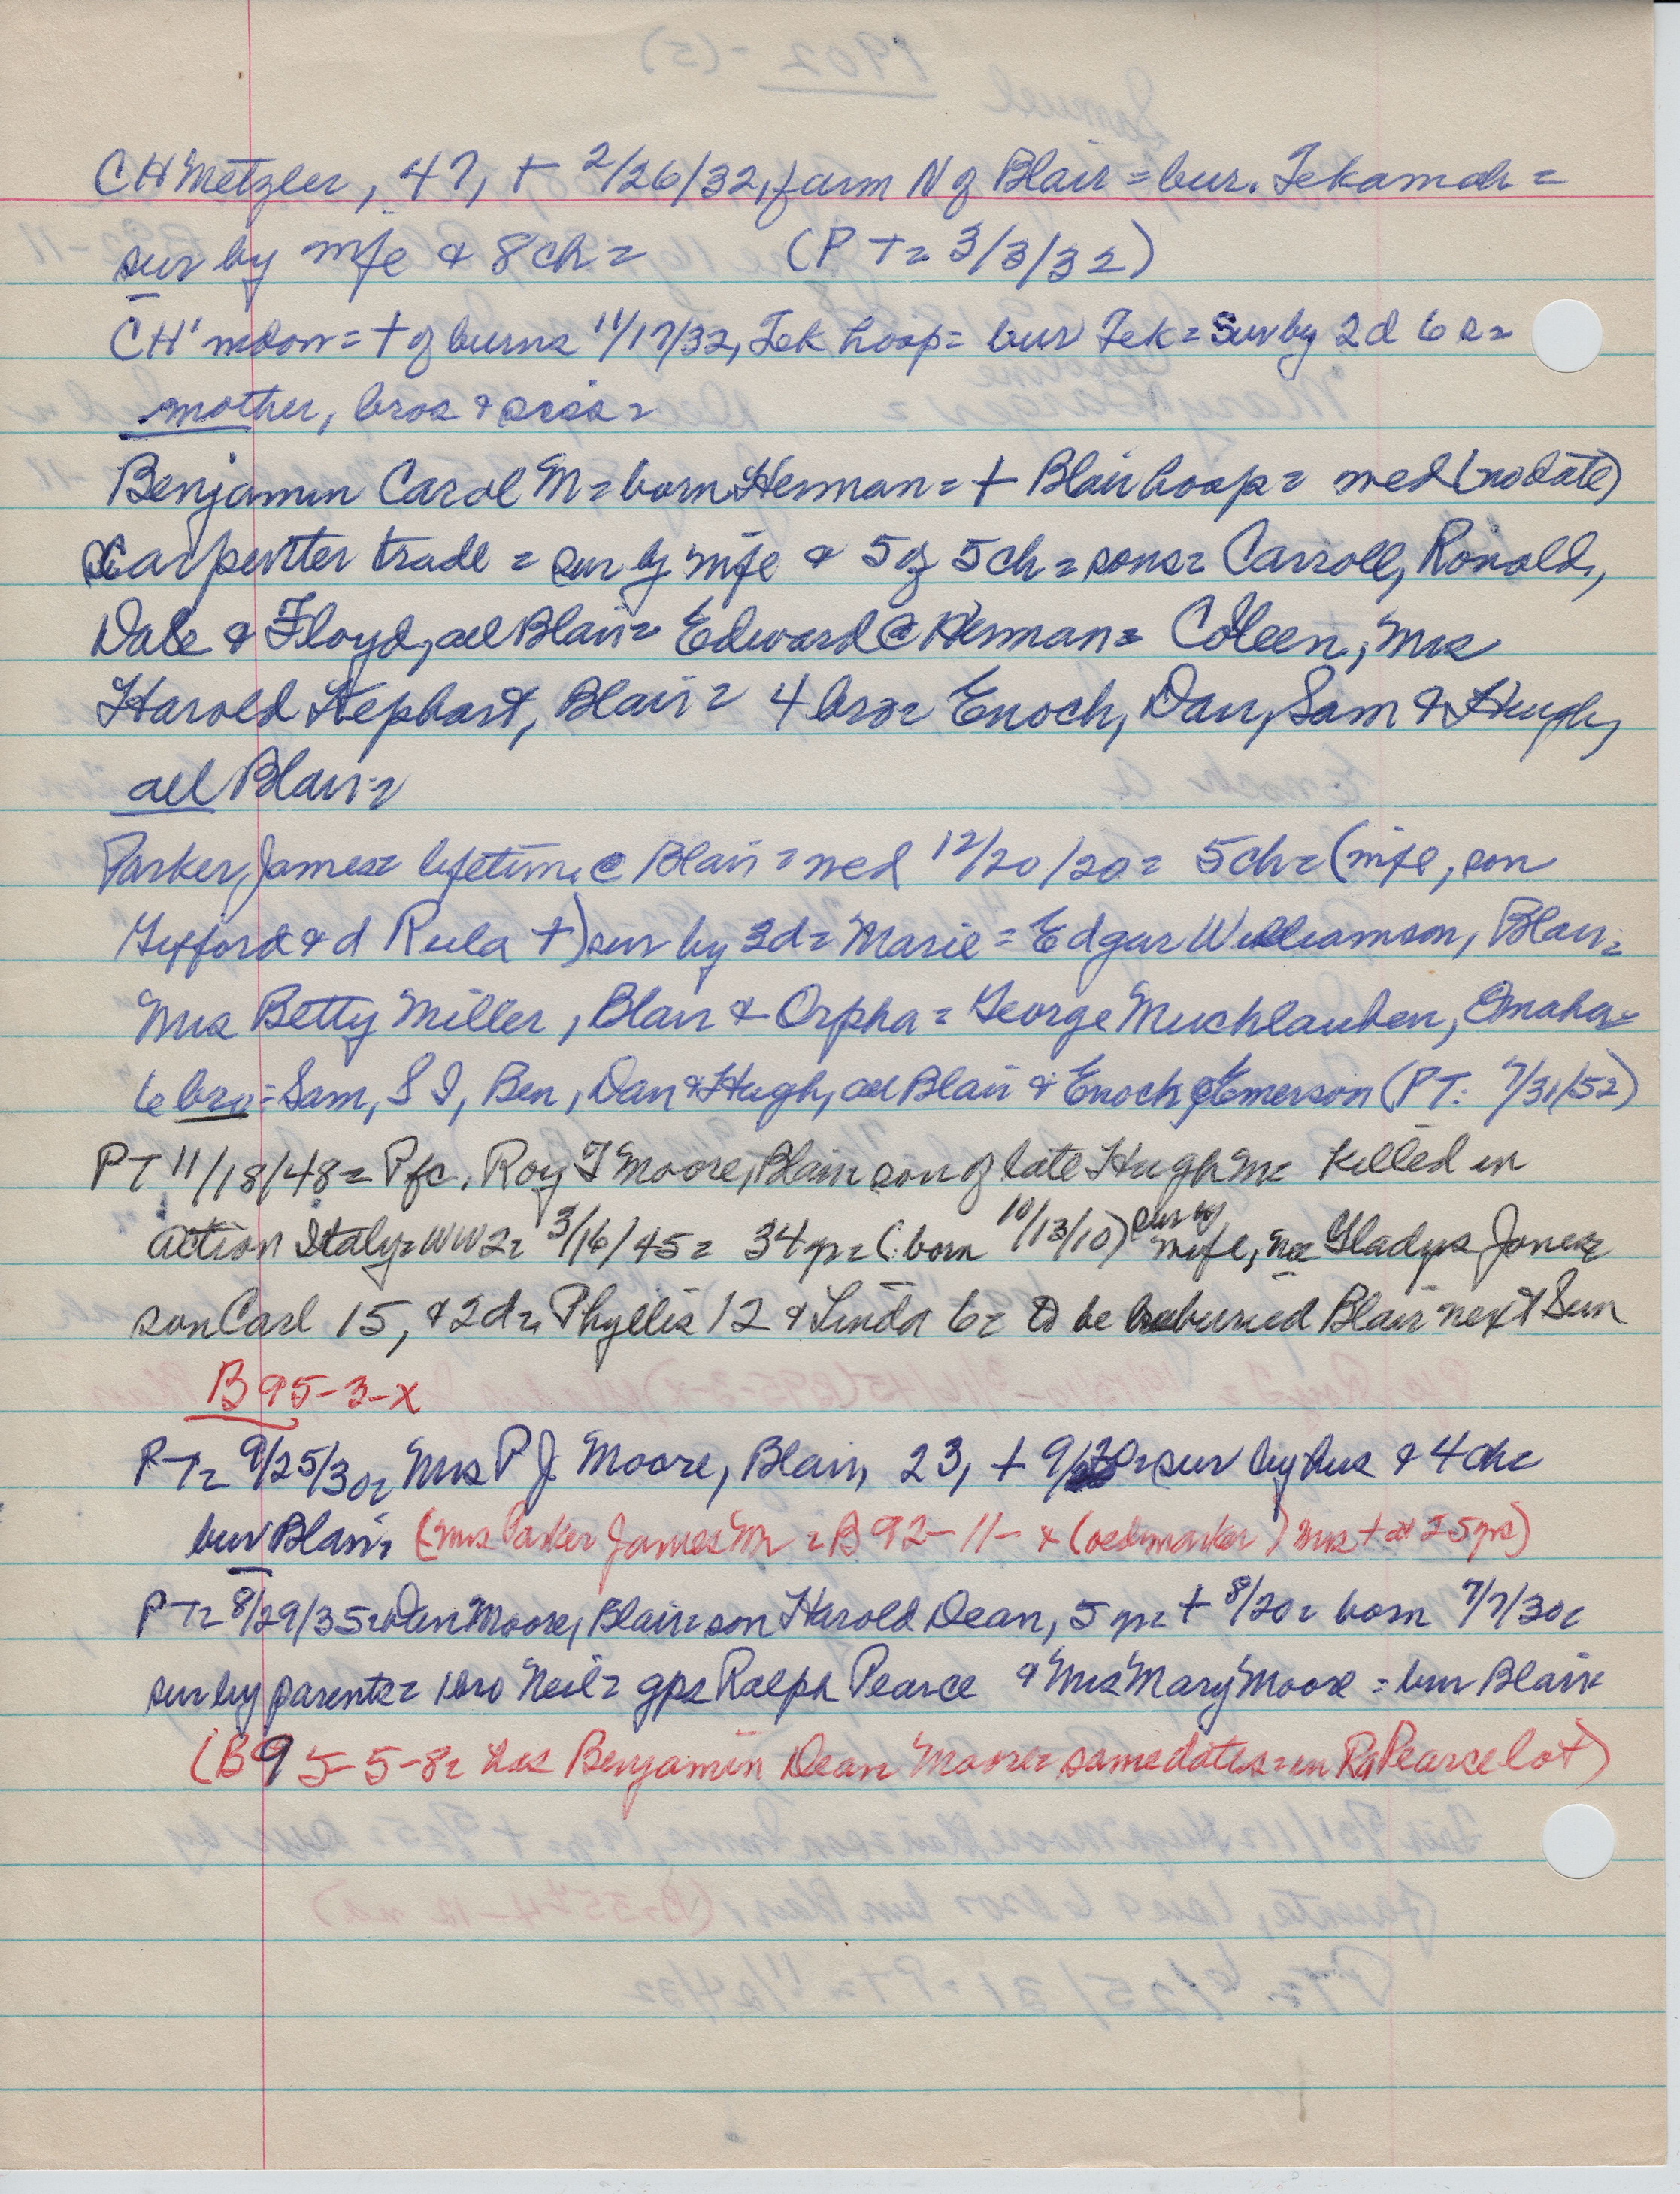 CH Metzler, 47, + 2/26/32, farm N of Blair = bur. Tekamah =
sur by wife & 8 ch = (PT = 3/3/32)
CH = + of burns 11/17/32, Tek hosp = bur Tek = Sur by 2 d 6 s =
mother, bros & siss =
Benjamin Carol M = born Herman = + Blair hosp = wed (no date)
Carpenter trade = sur by wife & 5 of 5 ch = sons = Carroll, Ronald,
Dale & Floyd, all Blair = Edward @ Herman = Colleen, Mrs
Harold Hephart, Blair = 4 bro = Enoch, Dan, Sam & Hugh,
all Blair =
Parker James = lifetime @ Blair = wed 12/20/20 = 5 ch = (wife, son
Gifford & d Rula +) sur by 3 d = Marie = Edgar Williamson, Blair =
Mrs Betty Miller, Blair & Orpha = George Muchlauben, Omaha =
6 bro = Sam, S I, Ben, Dan & Hugh, all Blair & Enoch @ Emerson (PT. 7/31/52)
PT 11/18/48 = Pfc. Roy F Moore, Blair son of late Hugh M = Killed in
action Italy = WW2 = 3/16/45 = 34 yr = (born 10/13/10) sur by wife, nee Gladys Jones =
son Carl 15, & 2 d = Phyllis 12 & Linda 6 = to be buried Blair next Sun
B 95-3-x
PT = 9/25/30 = Mrs P J Moore, Blair, 23, + 9/20 = sur by hus & 4 ch =
bur Blair = (Mrs Parker James M = B 92-11-x (old marker) Mrs + at 25 yrs)
PT = 8/29/35 = Dan Moore, Blair = son Harold Dean, 5 yr = + 8/20 = born 7/7/30 =
sur by parents = 1 bro Neil = gps Ralph Pearce & Mrs Mary Moore = bur Blair
(B 95-5-8 = has Benjamin Dean Moore = same dates = in R Pearce lot)